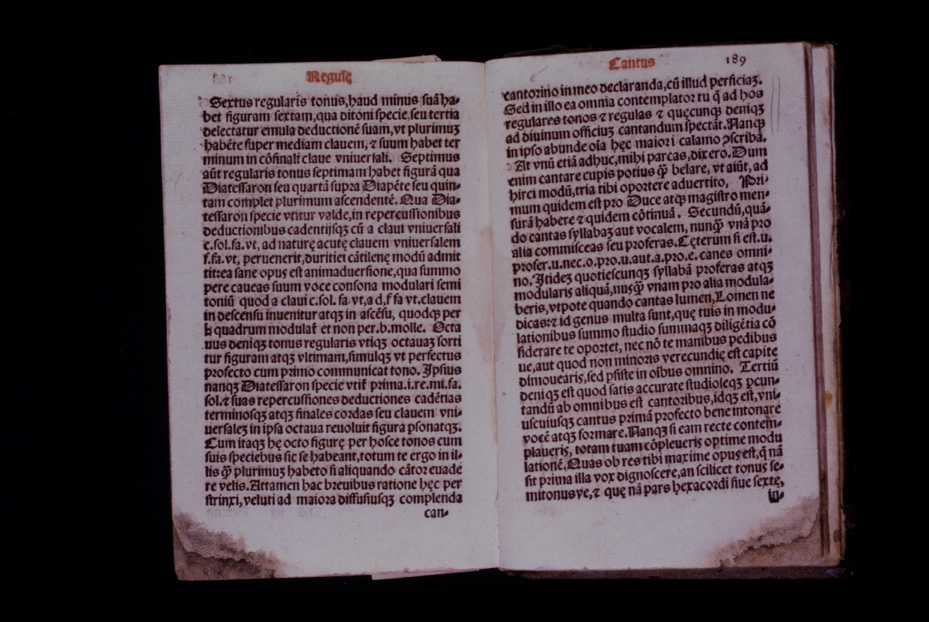 Regulę
Sextus regularis tonus, haud minus suã ha-
bet figuram sextam, qua ditoni specie, seu tertia
delectatur emula deductionē suam, vt plurimũ
habēre super mediam clauem, ⁊ suum habet ter
minum in cõfinali claue vniuersali. Septimus
aũt regularis tonus septimam habet figurã qua
Diatessaron seu quartã supra Diapēte seu quin-
tam complet plurimum ascendentē. Qua Dia-
tessaron specie vtitur valde, in repercussionibus
deductionibus cadentijsqꝫ cũ a claui vniuersali
c.sol.fa.vt, ad naturę acutę clauem vniuersalem
f.fa.vt, peruenerit, duritiei cãtilenę modũ admit
tit: ea sane opus est animaduersione, qua summo
pere caueas suum voce consona modulari semi
toniũ quod a claui c.sol.fa.vt, a d, f fa vt. clauem
in descensu inuenitur atqꝫ in ascẽsu, quodqꝫ per
♮ quadrum modulat᷑ et non per .b. molle. Octa
uus deniqꝫ tonus regularis vtiqꝫ octauaꝫ sorti
tur figuram atqꝫ vltimam, simulqꝫ vt perfectus
profecto cum primo communicat tono. Ipsius
nanqꝫ Diatessaron specie vtit᷑ prima .i. re.mi.fa.
sol. ⁊ suas repercussiones deductiones cadētias
terminosqꝫ atqꝫ finales cordas seu clauem vni-
uersaleꝫ in ipsa octaua reuoluit figura psonatqꝫ.
Cum itaqꝫ hę octo figurę per hosce tonos cum
suis speciebus sic se habeant, totum te ergo in il-
lis q̃ plurimuꝫ habeto si aliquando cãtor euade
re velis. Attamen hac breuibus ratione hęc per
strinxi, veluti ad maiora diffusiusqꝫ complenda
can-
Cantus 189
cantorino in meo declaranda, cũ illud perficiaꝫ.
Sed in illo ea omnia contemplator tu q̃ ad hos
regulares tonos ⁊ regulas ⁊ quęcunqꝫ deniqꝫ
ad diuinum officiuꝫ cantandum spectãt. Nanqꝫ
in ipso abunde oĩa hęc maiori calamo ꝯscribã.
At vnũ etiã adhuc, mihi parcas, dixero. Dum
enim cantare cupis potius q̃ belare, vt aiũt, ad
hirci modũ, tria tibi oportere aduertito, Pri-
mum quidem est pro Duce atqꝫ magistro men-
surã habere ⁊ quidem cõtinuã. Secundũ, quã-
do cantas syllabaꝫ aut vocalem, nunq̃ vnã pro
alia commisceas seu proferas. Cęterum si est .u.
profer .u. nec .o. pro .u. aut .a. pro .e. canes omni-
no. Itideꝫ quotiescunqꝫ syllabã proferas atqꝫ
modularis aliquã, nusq̃ vnam pro alia modula-
beris, vtpote quando cantas lumen, Loimen ne
dicas: ⁊ id genus multa sunt, quę tuis in modu-
lationibus summo studio summaqꝫ diligẽtia cõ
siderare te oportet, nec nõ te manibus pedibus
ue, aut quod non minoris verecundię est capite
dimouearis, sed psiste in oĩbus omnino. Tertiũ
deniqꝫ est quod satis accurate studioseqꝫ pcun-
tandũ ab omnibus est cantoribus, idqꝫ est, vni-
uscuiusqꝫ cantus primã profecto bene intonare
vocē atqꝫ formare. Nanqꝫ si eam recte contem-
plaueris, totam tuam cõpleueris optime modu
lationē. Quas ob res tibi maxime opus est, q̃ nã
sit prima illa vox dignoscere, an scilicet tonus se-
mitonusve, ⁊ quę nã pars hexacordi siue sextę,
in-